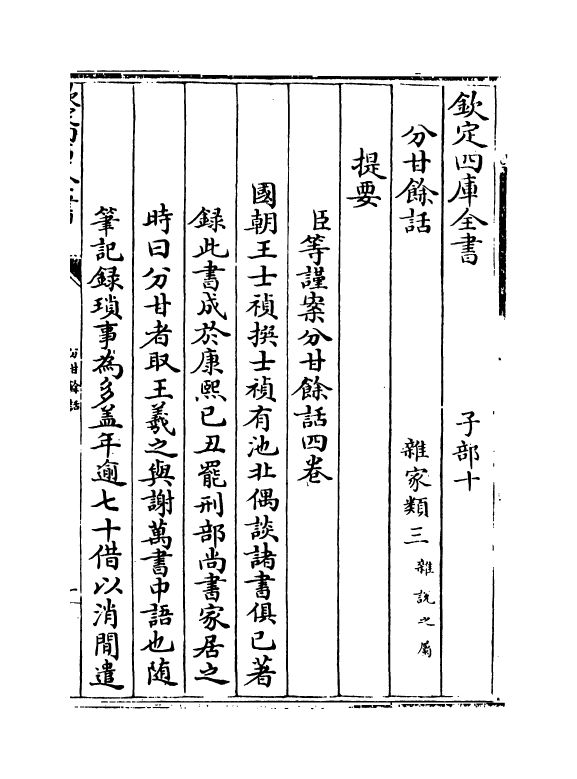 欽定四庫全書　子部十
分甘餘話　雜家類三雜說之屬
提要
臣等謹案分甘餘話四卷
國朝王士禎撰士禎有池北偶談諸書俱已著
録此書成於康熙己丑罷刑部尚書家居之
時曰分甘者取王羲之與謝萬書中語也随
筆記録瑣事為多盖年逾七十借以消閒遣
分甘餘話
一